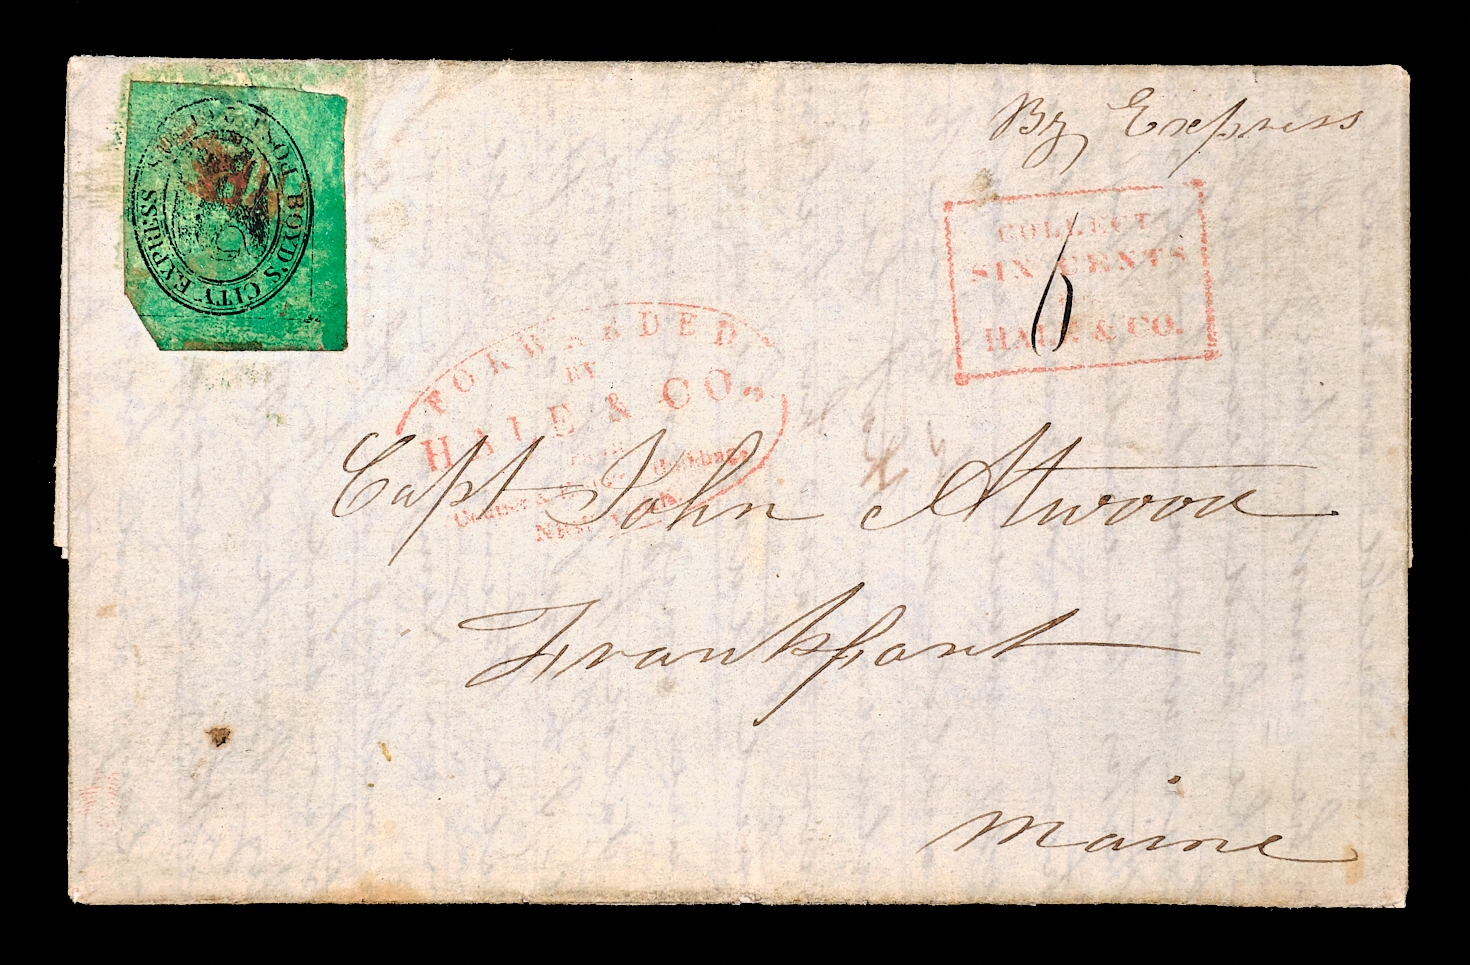 By Express
BOYD'S CITY EXPRESS POST
COLLECT
SIX CENTS
HALE & CO.
6
FORWARDED
BY
HALE & CO.,
Capt John Atwood
Frankfort
Maine